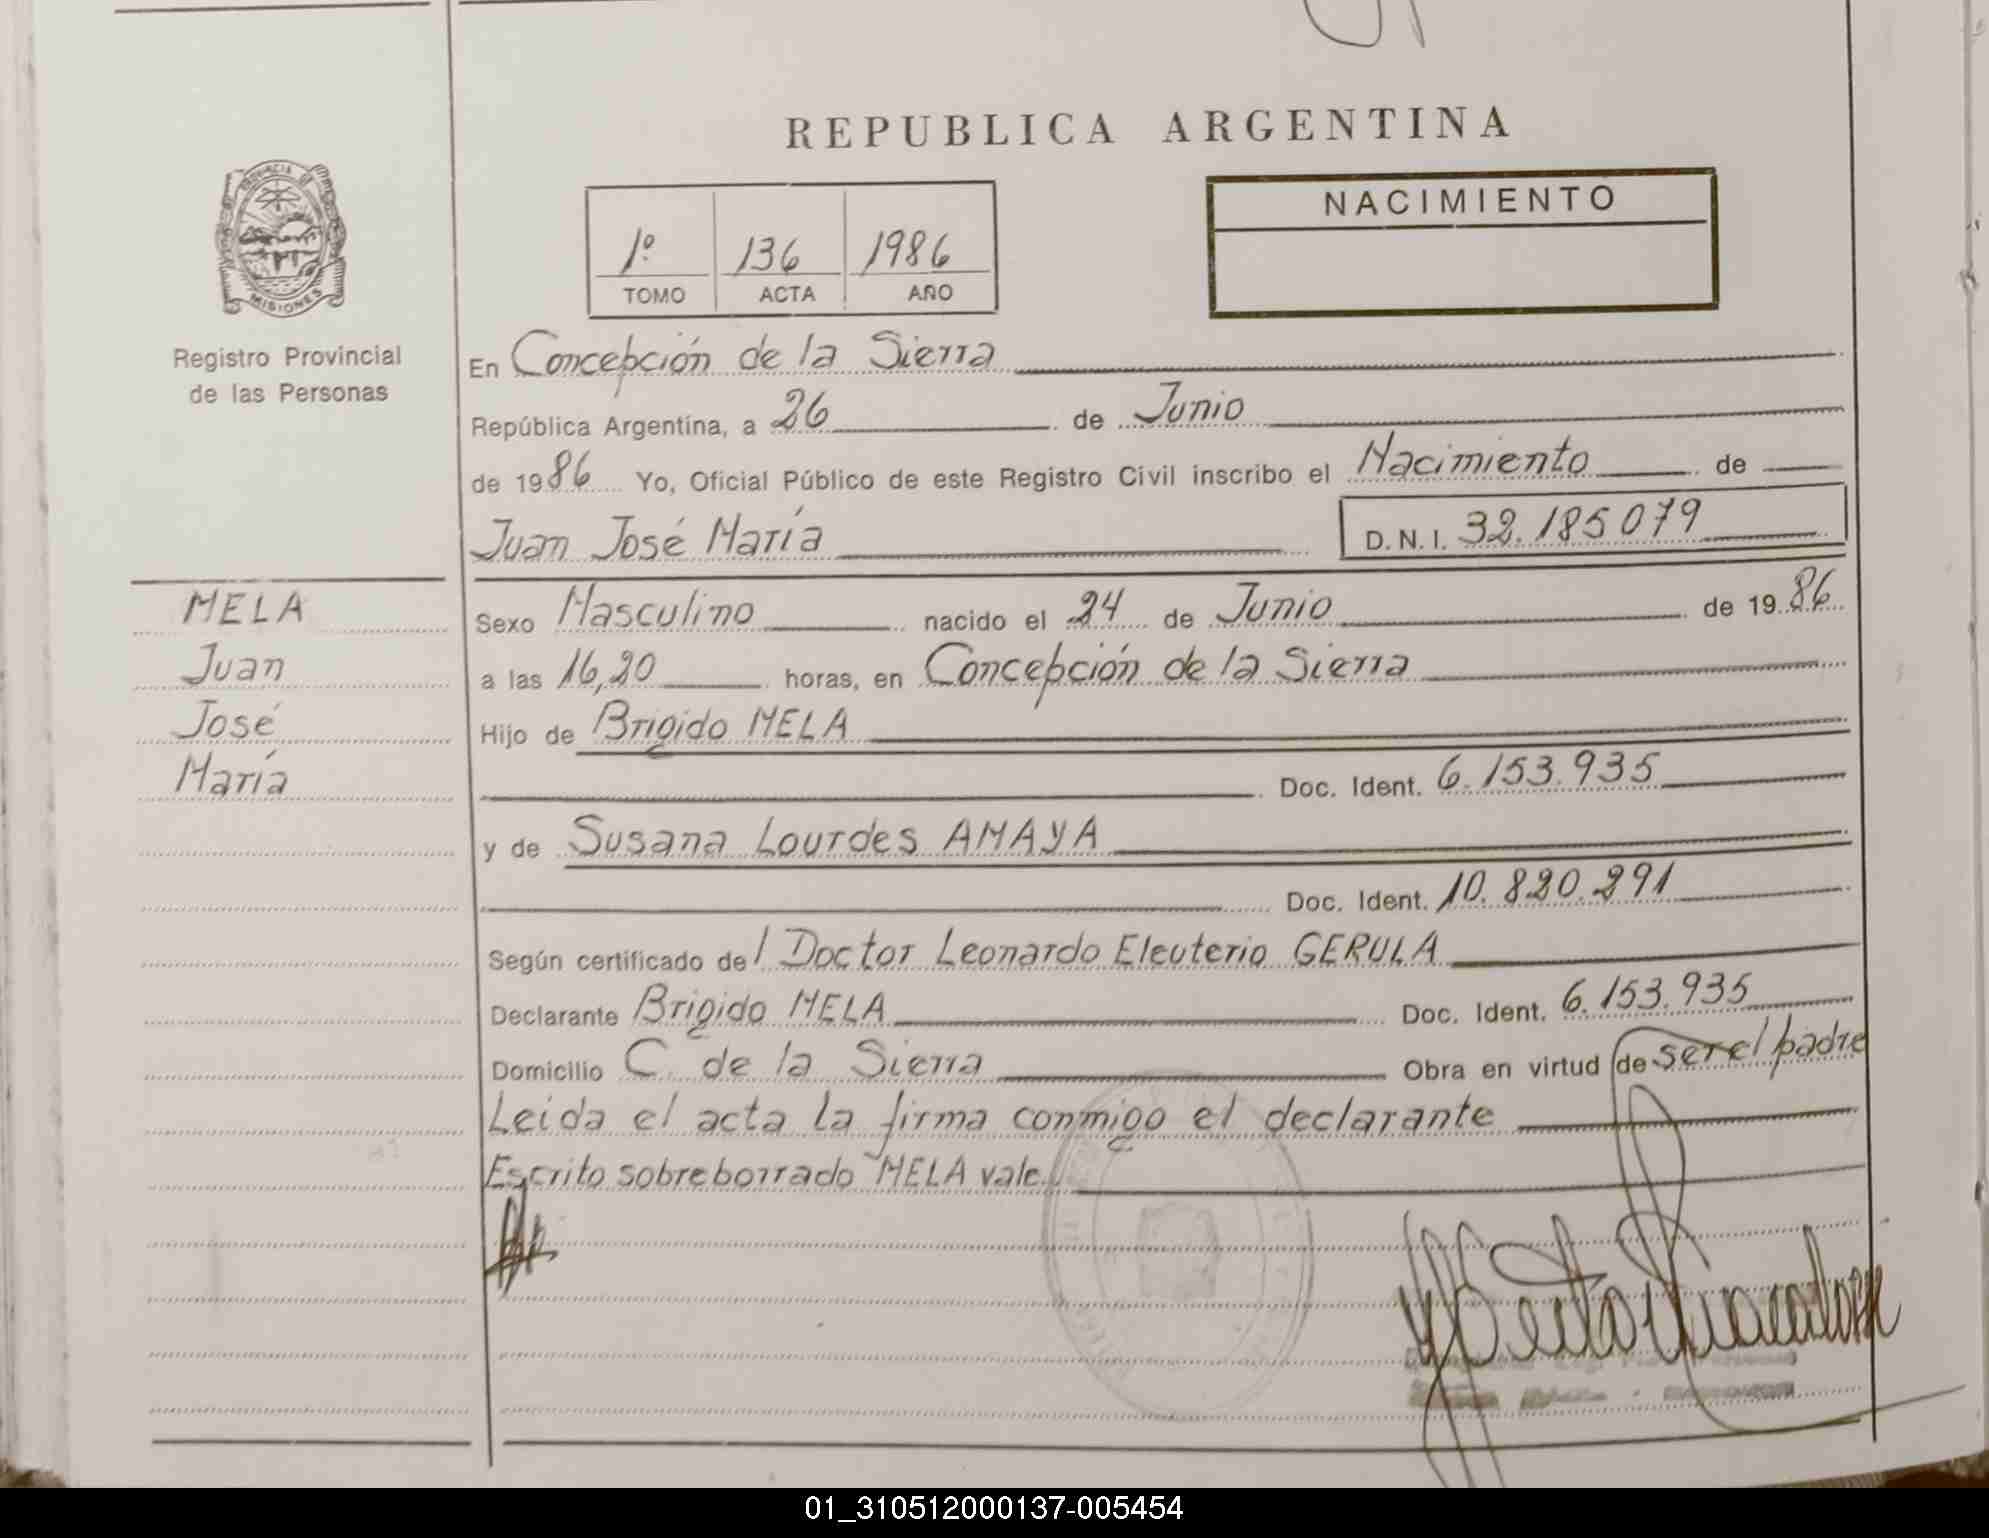 REPUBLICA ARGENTINA
PROVINCIA DE
MISIONES
Registro Provincial
de las Personas
1º 136 1986
TOMO ACTA AÑO
NACIMIENTO
En Concepción de la Sierra
República Argentina, a 26 de Junio
de 1986 Yo, Oficial Público de este Registro Civil inscribo el Nacimiento de
Juan José María D.N.I. 32.185079
MELA
Juan
José
María
Sexo Masculino nacido el 24 de Junio de 1986
a las 16,20 horas, en Concepción de la Sierra
Hijo de Brigido MELA
Doc. Ident. 6.153.935
y de Susana Lourdes AMAYA
Doc. Ident. 10.820.291
Según certificado del Doctor Leonardo Eleuterio GERULA
Declarante Brigido MELA Doc. Ident. 6.153.935
Domicilio C. de la Sierra Obra en virtud de ser el padre
Leida el acta la firma conmigo el declarante
Escrito sobreborrado "MELA vale.
01_310512000137-005454